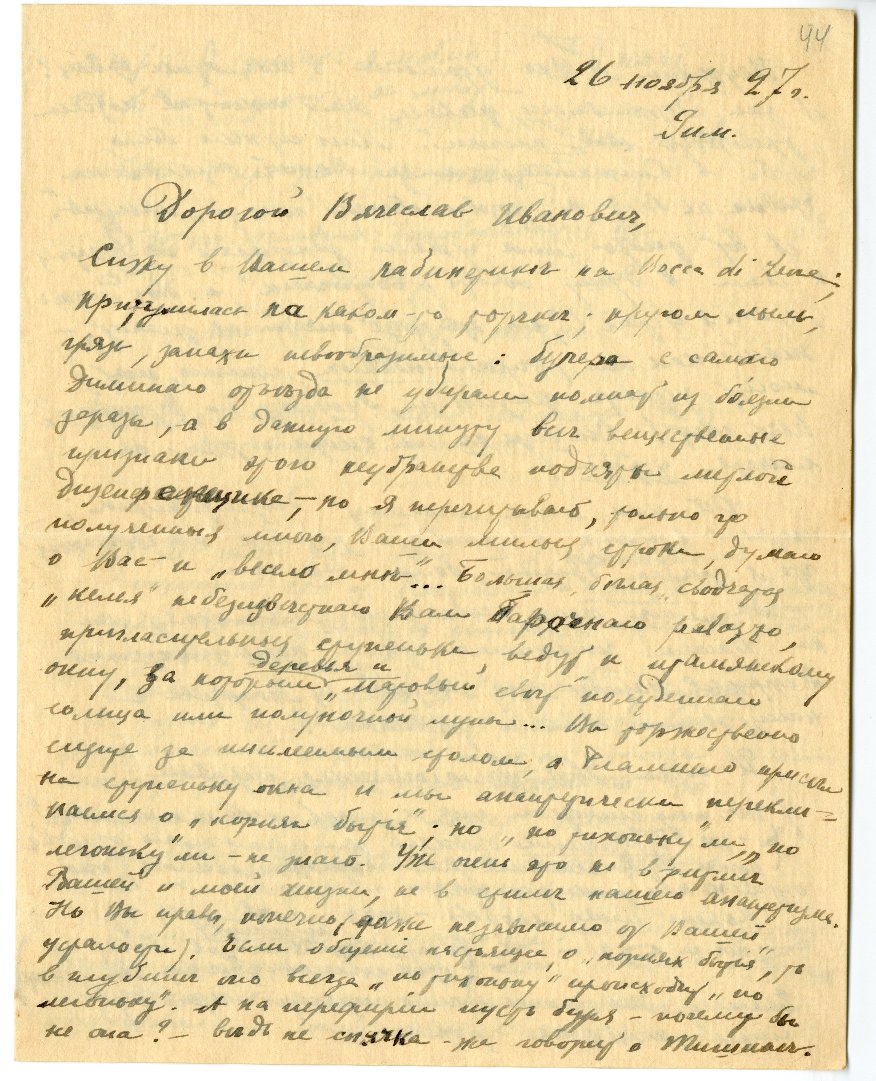 44
26 ноября 27 г.
Рим.
Дорогой Вячеслав Иванович,
Сижу в Вашем кабинетикѣ на Bocca di Leone;
притулилась на каком-то торчкѣ; кругом пыль,
грязь, запахи невообразимые: бучера с самаго
Диминаго отъѣзда не убирали комнат из боязни
заразы, а в данную минуту всѣ вещественные
признаки этого неубранства подняты метлой
дизенфекщика, но я перечитываю, только что
полученныя мною, Ваши милыя строки, думаю
о Вас – и „весело мнѣ"... Большая, бѣлая, сводчатая
„келья" небезизвѣстнаго Вам Барочнаго palazzo,
пригласительныя ступеньки ведут к итальянскому
окну, за которым деревья и „матовый свѣт" полуденнаго
солнца или полуночной луны... Вы торжественно
сидите за письменным столом, а Фламинго присѣл
на ступеньку окна и мы анахоретически перекли=
каемся о „корнях бытія"; но „по тихоньку" ли, „по
легоньку" ли – не знаю. Уж очень это не в ритмѣ
Вашей и моей жизни, не в стилѣ нашего
Но Вы правы, конечно, (даже независимо от Вашей
усталости). Если общеніе настоящее, о „корнях бытья", то
в глубинѣ оно всегда „по тихоньку" происходит „по
легоньку". А на периферіи пусть буря – почему бы
не она? – вѣдь не спячка-же говорит о Тишинѣ.